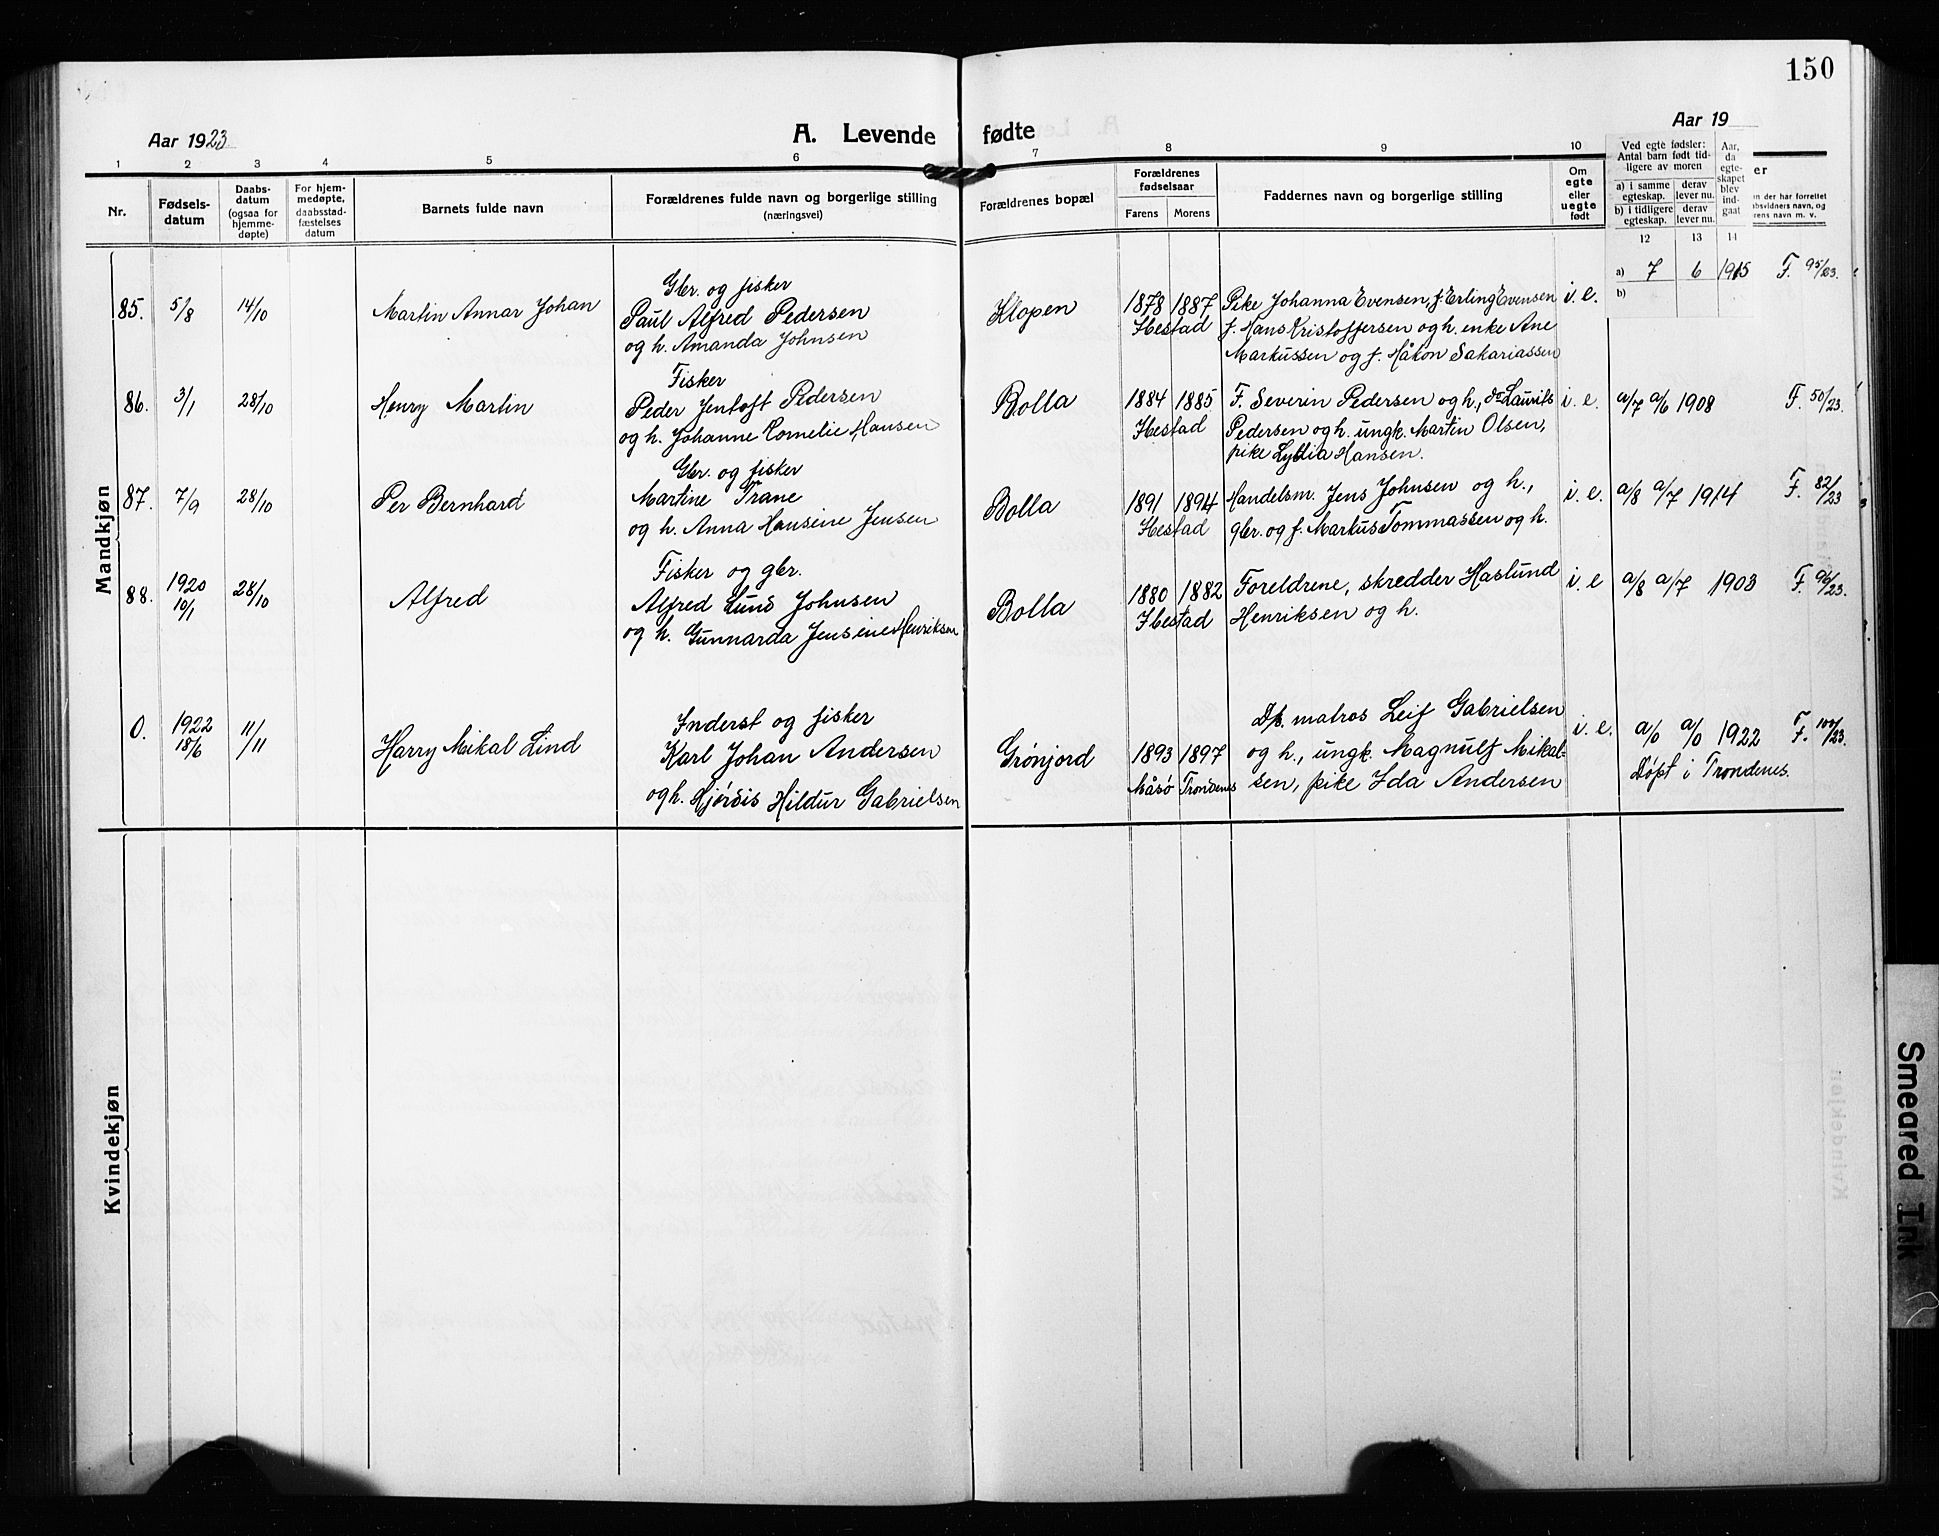 150
Aar 1923
A. Levende fødte
Aar 19
1 2 3 4 5 6 7 8 9 10
Nr.
Fødsels-
datum
Daabs-
datum
(ogsaa for
hjemme-
døpte)
For hjem-
medøpte,
daabsstad-
fæstelses
datum
Barnets fulde navn
Forældrenes fulde navn og borgerlige stilling
(næringsvei)
Forældrenes bopæl
Forældrenes
fødselsaar
Farens Morens
Faddernes navn og borgerlige stilling
Om
egte
eller
uegte
født
Ved egte fødsler:
Antal barn født tid-
ligere av moren
a) i samme
egteskap.
b) i tidligere
egteskap.
derav
lever nu.
derav
lever nu.
Aar,
da
egte-
skapet
blev
ind-
gaat
12 13 14
er
n der har forrettet
absvidners navn, og
rens navn m. v.
Mandkjøn
85. 5/8 14/10 Martin Annar Johan
Gbr. og fisker
Paul Alfred Pedersen
og h. Amanda Johnsen
Klopen 1878 1887
Ibestad
Pike Johanna Evensen, f. Erling Evensen
f. Hans Kristoffersen og h. enke Ane
Markussen og f. Håkon Sakariassen
i. e. a) 7 6 1915 F. 95/23.
b)
86. 3/1 28/10 Henry Martin
Fisker
Peder Jentoft Pedersen
og h. Johanne Kornelie Hansen
Bolla 1884 1885
Ibestad
F. Severin Pedersen og h., do Laurits
Pedersen og h. ungk. Martin Olsen,
pike Lydia Hansen.
i. e. a/7 a/6 1908 F. 50/23.
87. 7/9 28/10 Per Bernhard
Gbr. og fisker
Martine Trane
og h. Anna Hansine Jensen
Bolla 1891 1894
Ibestad
Handelsm. Jens Johnsen og h.,
gbr. og f. Markus Tommassen og h.
i. e. a/8 a/7 1914 F. 82/23
88. 1920
10/1 28/10 Alfred
Fisker og gbr.
Alfred Lund Johnsen
og h. Gunnarda Jensine Henriksen
Bolla 1880 1882
Ibestad
Foreldrene, skredder Haslund
Henriksen og h.
i. e a/8 a/7 1903 F. 96/23.
0. 1922
18/6 11/11 Harry Mikal Lind
Inderst og fisker
Karl Johan Andersen
og h. Hjørdis Hildur Gabrielsen
Grønjord 1893 1897
Måsø Trondenes
Dp. matros Leif Gabrielsen
og h., ungk. Magnulf Mikal-
sen, pike Ida Andersen
i. e. a/0 a/0 1922 F. 100/23.
Døpt i Trondenes.
Kvindekjøn
Smeared Ink